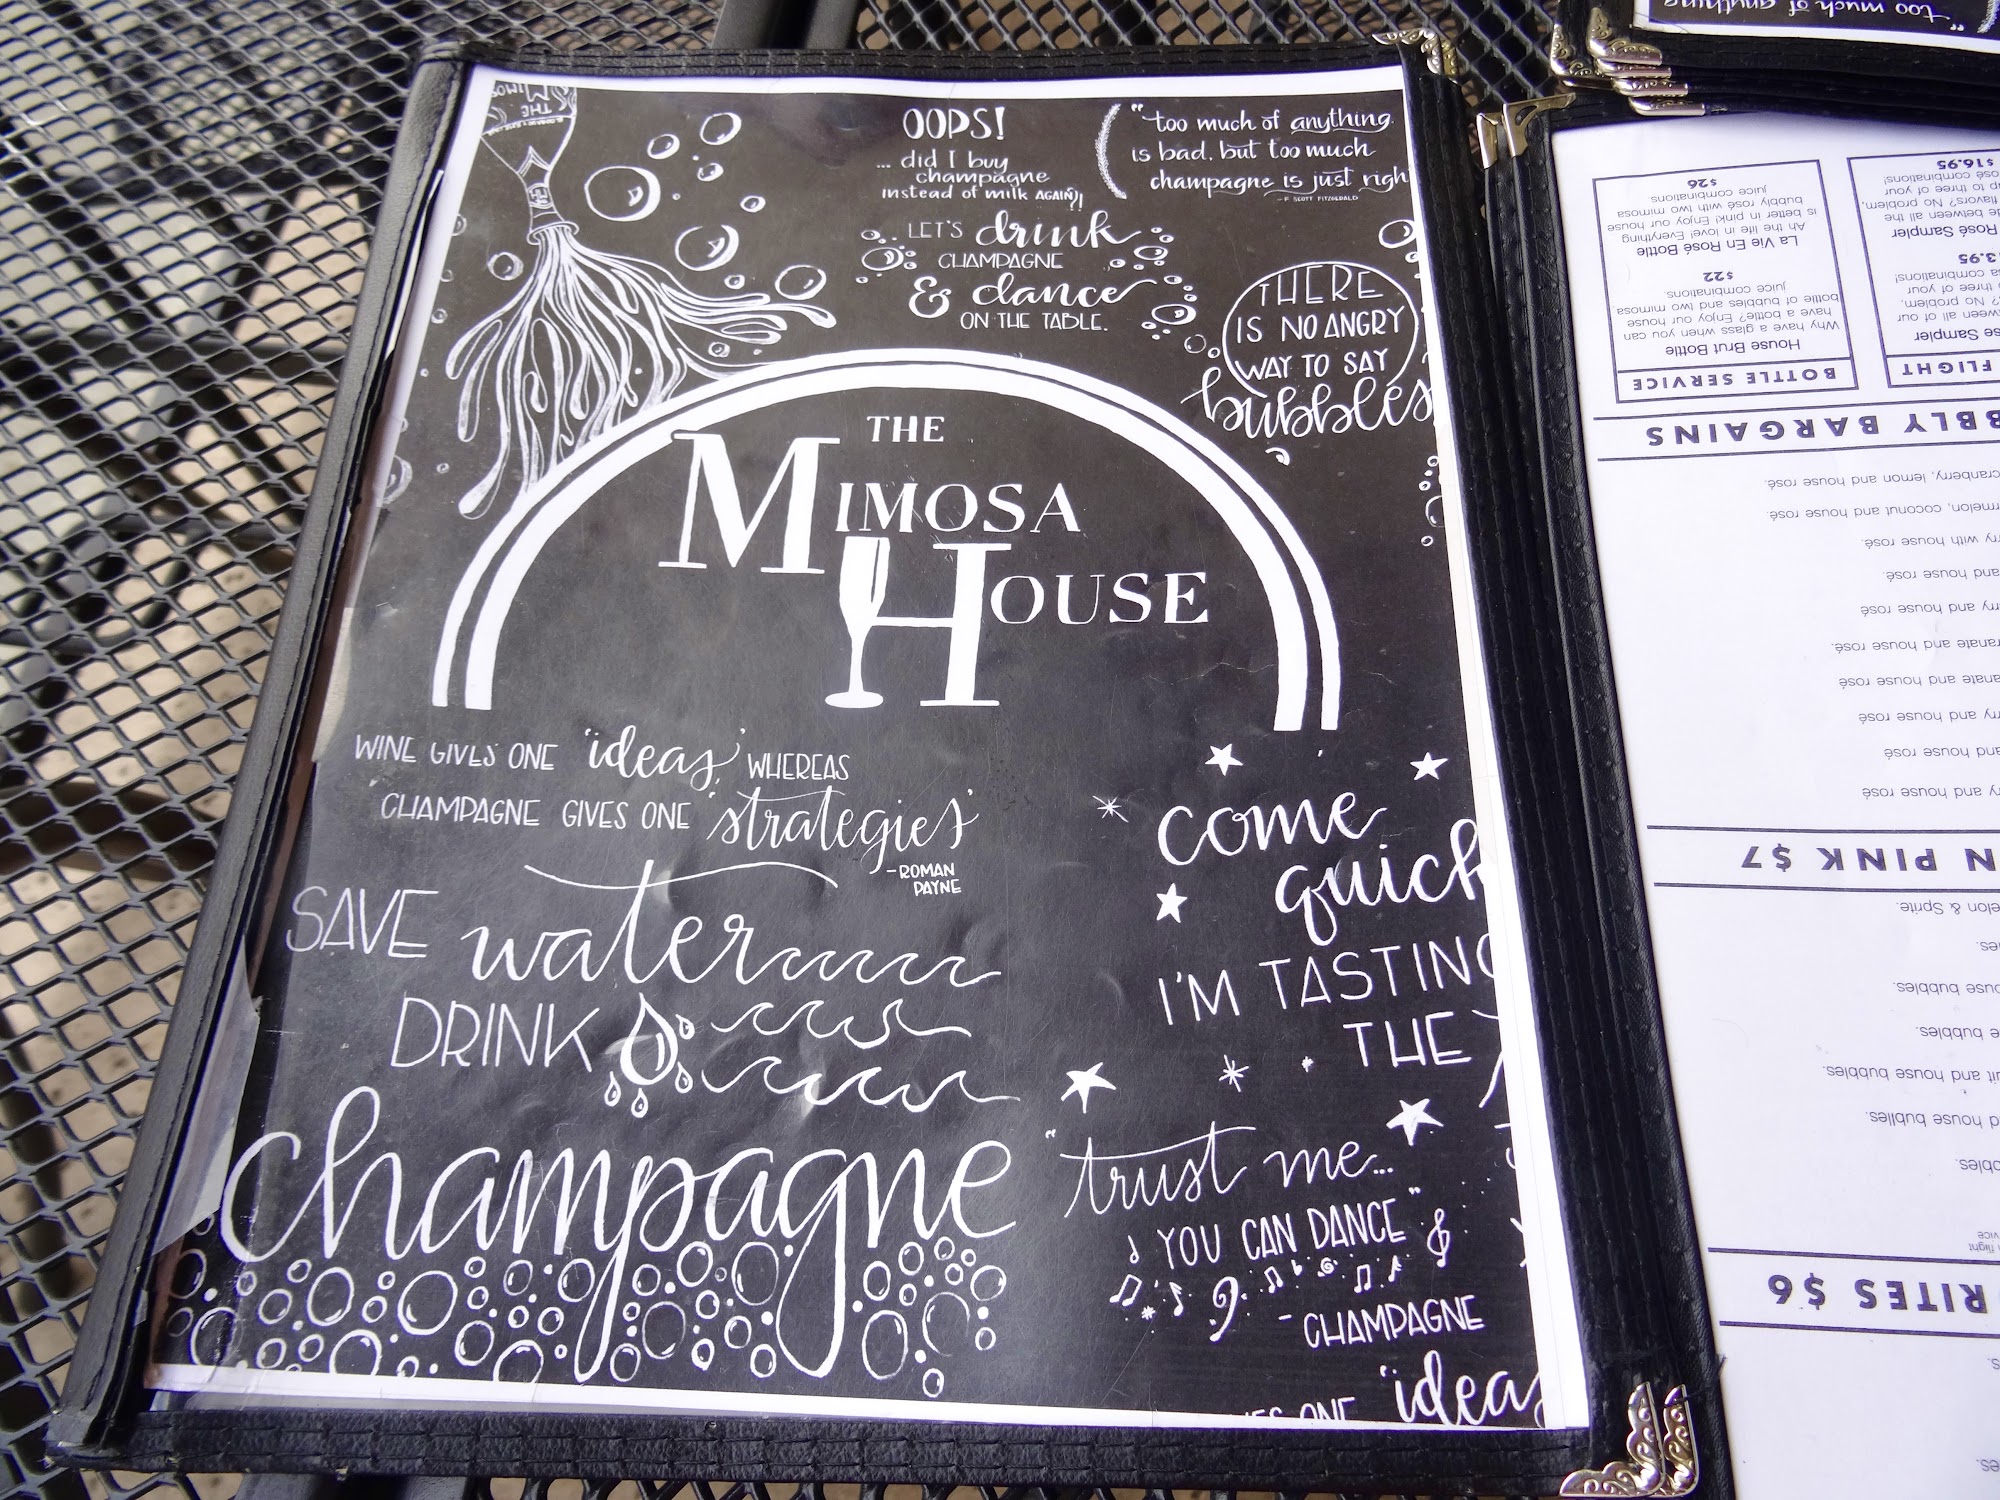 THE MIMOS
OOPS!
... did I buy
champagne
instead of milk AGAIN?!
"too much of anything
is bad, but too much
champagne is just righ
- F SCOTT FITZGERALD
LET'S drink
CHAMPAGNE
& dance
ON THE TABLE.
THERE
IS NO ANGRY
WAY TO SAY
bubbles
THE
MIMOSA
HOUSE
WINE GIVES ONE 'ideas', WHEREAS
'CHAMPAGNE GIVES ONE 'strategies'
-ROMAN
PAYNE
SAVE water
DRINK
champagne
come
quick
I'M TASTING
THE
"trust me...
YOU CAN DANCE"
- CHAMPAGNE
ONE 'ideas
too much of anything
RITES $6
bubbles.
d house bubbles.
it and house bubbles.
e bubbles.
ouse bubbles.
es.
elon & Sprite.
N PINK $7
ry and house rosé
and house rosé
ry and house rosé.
anate and house rosé.
ranate and house rosé.
rry and house rosé
and house rosé.
ry with house rosé.
rmelon, coconut and house rosé.
cranberry, lemon and house rosé.
BBLY BARGAINS
BOTTLE SERVICE
House Brut Bottle
Why have a glass when you can
have a bottle? Enjoy our house
bottle of bubbles and two mimosa
juice combinations.
$22
La Vie En Rosé Bottle
Ah the life in love! Everything
is better in pink! Enjoy our house
bubbly rosé with two mimosa
juice combinations.
$26
FLIGHT
se Sampler
ween all of our
? No problem,
three of your
a combinations!
13.95
Rosé Sampler
de between all the
flavors? No problem,
up to three of your
osé combinations!
$16.95